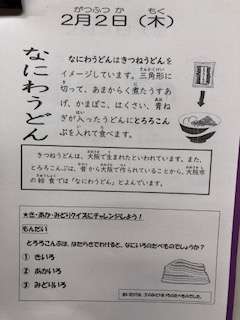 がつ ふつ か もく
2月2日（木）
なにわうどん
なにわうどんはきつねうどんを
イメージしています。三角形に
切って、あまからく煮たうすあ
げ、かまぼこ、はくさい、青ね
ぎが入ったうどんにとろろこん
ぶを入れて食べます。
きつねうどんは、大阪で生まれたといわれています。また、
とろろこんぶは、昔から大阪で作られていることから、大阪市
の給食では「なにわうどん」とよんでいます。
★き・あか・みどりクイズにチャレンジしよう！
もんだい
とろろこんぶは、はたらきでわけると、なにいろのたべものでしょうか？
① きいろ
② あかいろ
③ みどりいろ